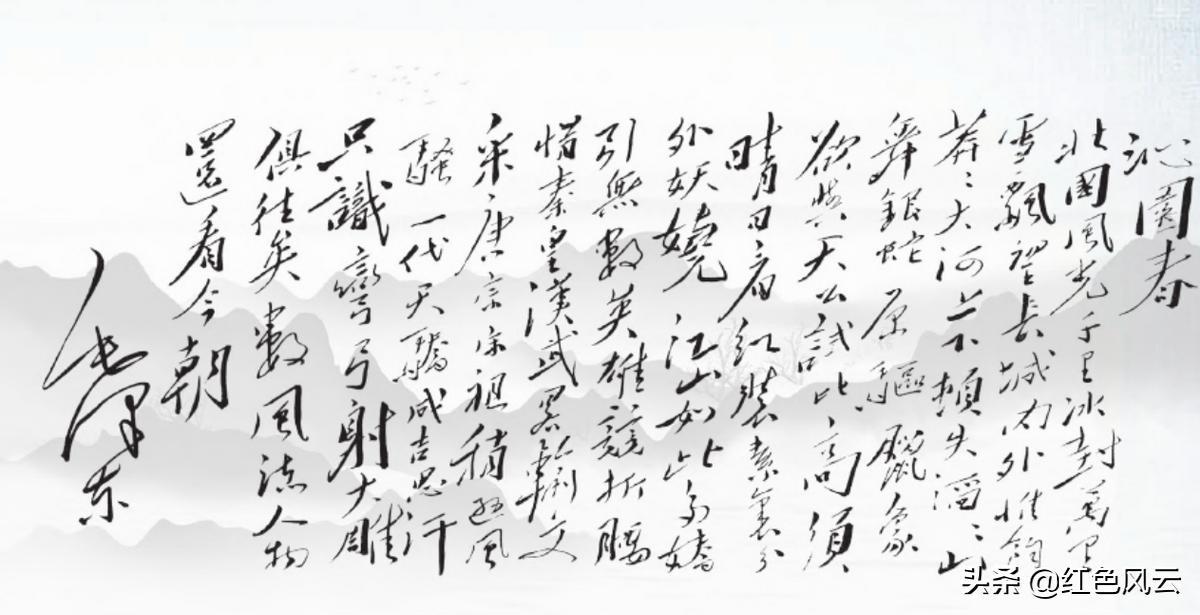 沁園春
北國風光千里冰封萬里
雪飄望長城内外惟餘
莽〻大河上下頓失滔〻山
舞銀蛇原驅臘象
欲與天公試比高須
晴日看紅裝素裹分
外妖嬈江山如此多嬌
引無數英雄競折腰
惜秦皇漢武畧輸文
采唐宗宋祖稍遜風
騷一代天驕成吉思汗
只識彎弓射大雕
俱往矣數風流人物
還看今朝
毛澤东
头条 @红色风云